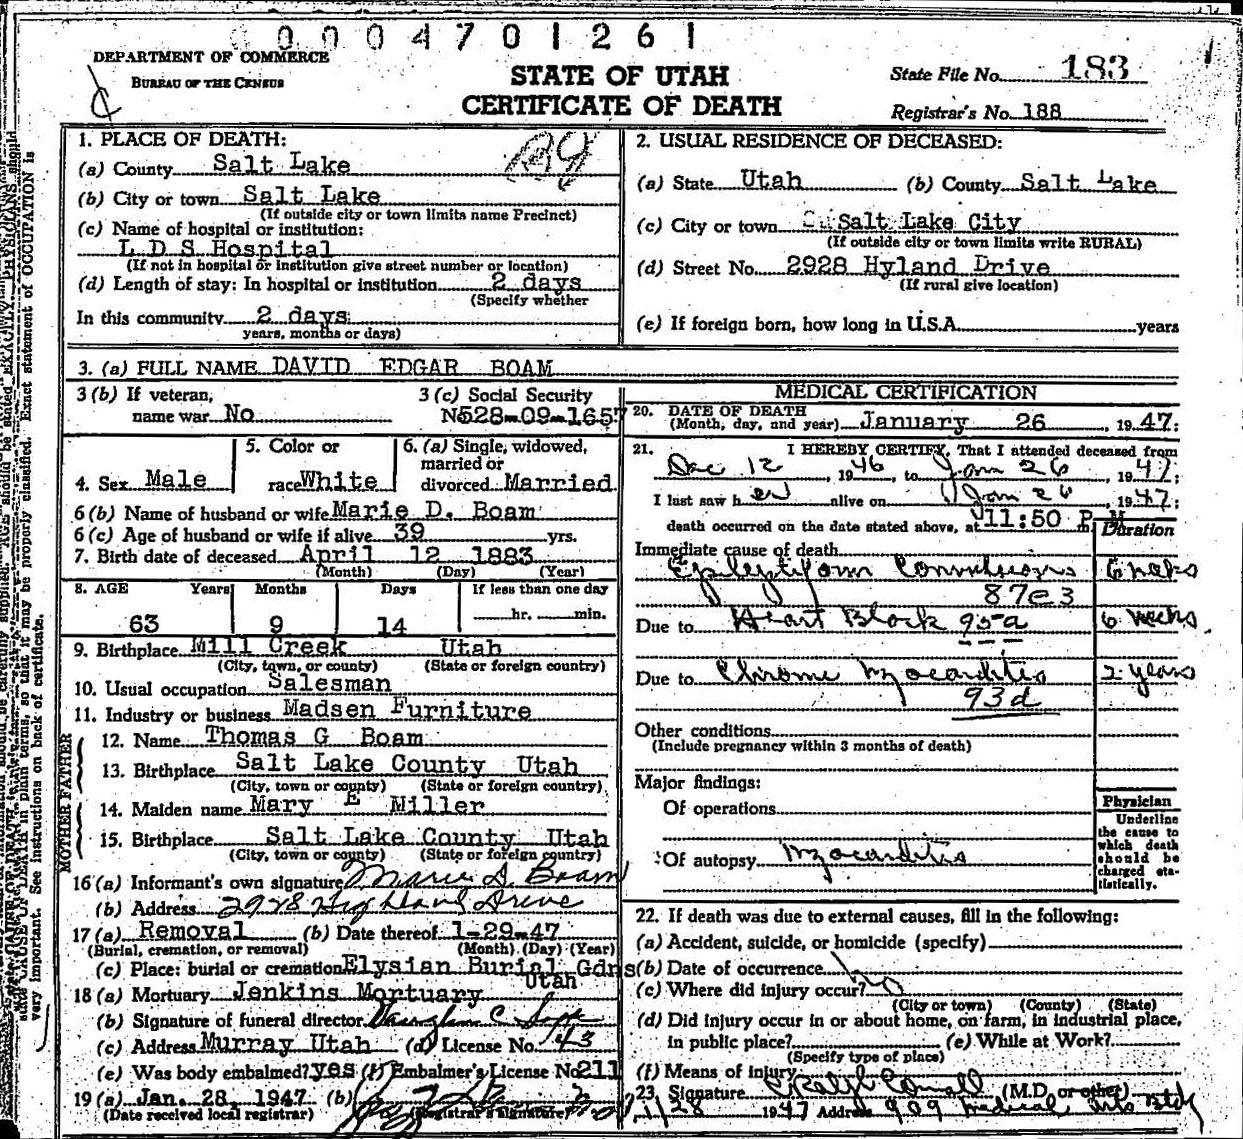 0004701261
DEPARTMENT OF COMMERCE
BUREAU OF THE CENSUS
STATE OF UTAH
CERTIFICATE OF DEATH
State File No. 183
Registrar's No. 188
1. PLACE OF DEATH:
(a) County Salt Lake
(b) City or town Salt Lake
(If outside city or town limits name Precinct)
(c) Name of hospital or institution:
L D S Hospital
(If not in hospital or institution give street number or location)
(d) Length of stay: In hospital or institution 2 days
(Specify whether
In this community 2 days
years, months or days)
2. USUAL RESIDENCE OF DECEASED:
(a) State Utah (b) County Salt Lake
(c) City or town Salt Lake City
(If outside city or town limits write RURAL)
(d) Street No. 2928 Hyland Drive
(If rural give location)
(e) If foreign born, how long in U.S.A. years
3. (a) FULL NAME DAVID EDGAR BOAM
3 (b) If veteran,
name war No
3 (c) Social Security
No 528-09-1657
4. Sex Male
5. Color or
race White
6. (a) Single, widowed,
married or
divorced Married
6 (b) Name of husband or wife Marie D. Boam
6 (c) Age of husband or wife if alive 39 yrs.
7. Birth date of deceased April 12 1883
(Month) (Day) (Year)
8. AGE Years Months Days If less than one day
63 9 14 hr. min.
9. Birthplace Mill Creek Utah
(City, town, or county) (State or foreign country)
10. Usual occupation Salesman
11. Industry or business Madsen Furniture
FATHER
12. Name Thomas G Boam
13. Birthplace Salt Lake County Utah
(City, town or county) (State or foreign country)
MOTHER
14. Maiden name Mary E Miller
15. Birthplace Salt Lake County Utah
(City, town or county) (State or foreign country)
16 (a) Informant's own signature Marie D. Boam
(b) Address 2928 Highland Drive
17 (a) Removal (b) Date thereof 1-29-47
(Burial, cremation, or removal) (Month) (Day) (Year)
(c) Place: burial or cremation Elysian Burial Gdns
Utah
18 (a) Mortuary Jenkins Mortuary
(b) Signature of funeral director Vaughn C
(c) Address Murray Utah (d) License No. 43
(e) Was body embalmed? yes (f) Embalmer's License No 211
19 (a) Jan. 28, 1947 (b)
(Date received local registrar) (Registrar's signature)
MEDICAL CERTIFICATION
20. DATE OF DEATH
(Month, day, and year) January 26, 1947;
21. I HEREBY CERTIFY, That I attended deceased from
Dec 12, 1946 to Jan 26 1947;
I last saw h er alive on Jan 26 1947;
death occurred on the date stated above, at 11:50 P M
Duration
Immediate cause of death
Epileptiform Convulsions 6 weeks
87e3
Due to Heart Block 95a 6 weeks
Due to Chronic Myocarditis 2 years
93d
Other conditions
(Include pregnancy within 3 months of death)
Major findings:
Of operations
Of autopsy Myocarditis
Physician
Underline
the cause to
which death
should be
charged sta-
tistically.
22. If death was due to external causes, fill in the following:
(a) Accident, suicide, or homicide (specify)
(b) Date of occurrence
(c) Where did injury occur? no
(City or town) (County) (State)
(d) Did injury occur in or about home, on farm, in industrial place,
in public place? (e) While at Work?
(Specify type of place)
(f) Means of injury
23. Signature (M.D. or other)
1/28 1947 Address 909 Medical Arts Bldg
very important. See instructions on back of certificate.